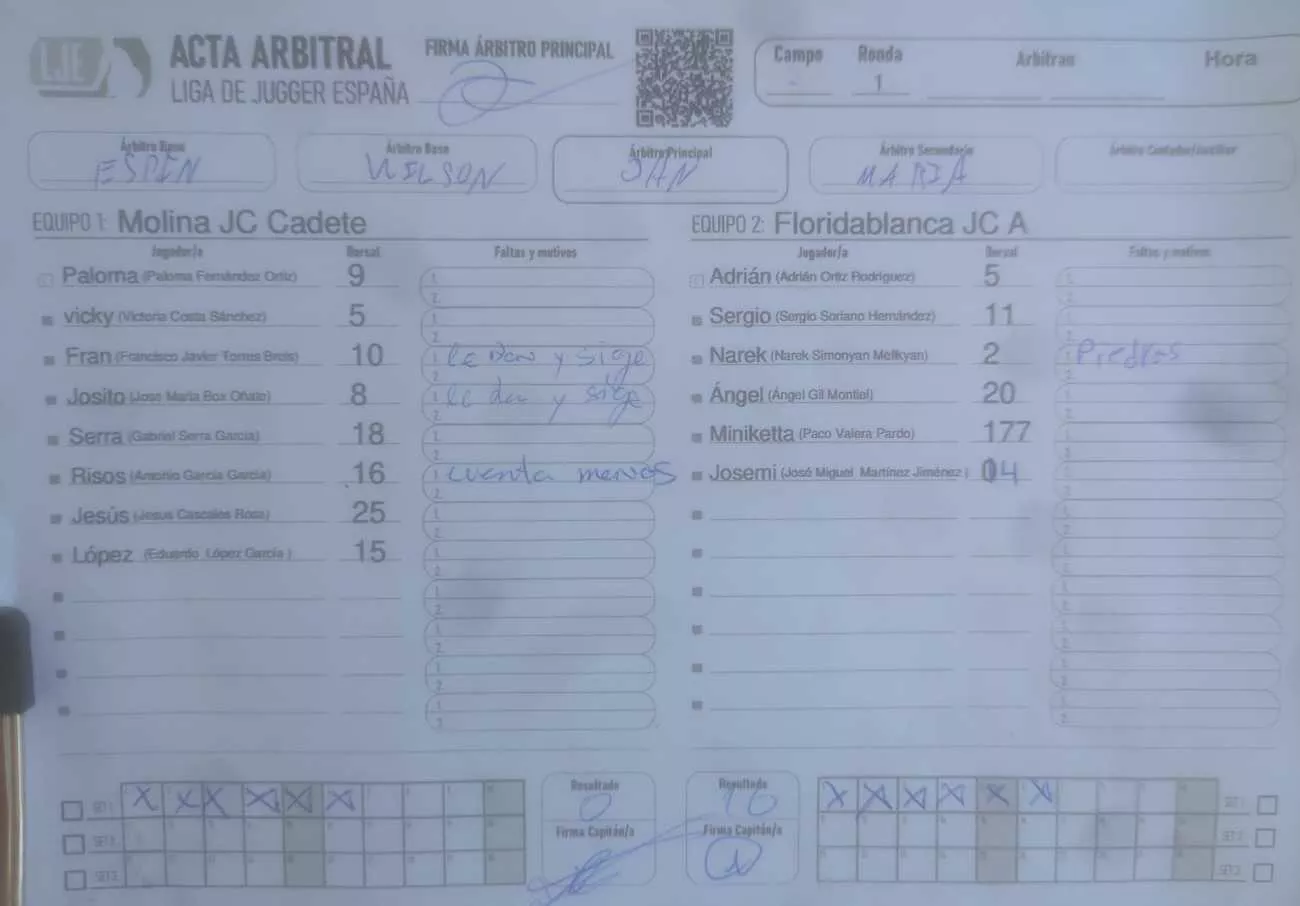 LJE
ACTA ARBITRAL
LIGA DE JUGGER ESPAÑA
FIRMA ÁRBITRO PRINCIPAL
Campo Ronda Arbitran Hora
- 1
Árbitro Base Árbitro Base Árbitro Principal Árbitro Secundario Árbitro Contador/Auxiliar
ESPÍN WILSON JAN MARIA
EQUIPO 1: Molina JC Cadete
Jugador/a Dorsal Faltas y motivos
Paloma (Paloma Fernández Ortiz) 9 1.
2.
vicky (Victoria Costa Sánchez) 5 1.
2.
Fran (Francisco Javier Torres Brots) 10 1. le Dan y sige
2.
Josito (Jose María Box Oñate) 8 1. le dan y sige
2.
Serra (Gabriel Serra García) 18 1.
2.
Risos (Antonio García García) 16 1. cuenta menos
2.
Jesús (Jesus Cascales Rosa) 25 1.
2.
López (Eduardo López García) 15 1.
2.
1.
2.
1.
2.
1.
2.
1.
2.
EQUIPO 2: Floridablanca JC A
Jugador/a Dorsal Faltas y motivos
Adrián (Adrián Ortiz Rodríguez) 5 1.
2.
Sergio (Sergio Soriano Hernández) 11 1.
2.
Narek (Narek Simonyan Melikyan) 2 1. Piedras
2.
Ángel (Ángel Gil Montiel) 20 1.
2.
Miniketta (Paco Valera Pardo) 177 1.
2.
Josemi (José Miguel Martínez Jiménez) 04 1.
2.
1.
2.
1.
2.
1.
2.
1.
2.
1.
2.
1.
2.
SET 1 X X X X X X
SET 2
SET 3
Resultado Resultado
0 10
Firma Capitán/a Firma Capitán/a
X X X X X X SET 1
SET 2
SET 3